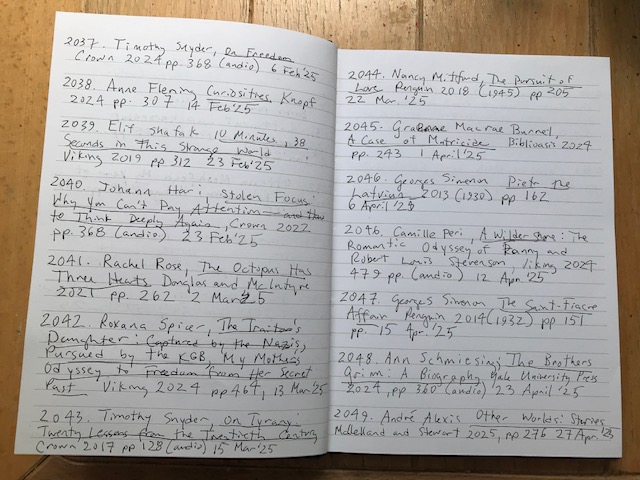 2037. Timothy Snyder, On Freedom
Crown 2024 pp. 368 (audio) 6 Feb '25
2038. Anne Fleming Curiosities, Knopf
2024 pp. 307 14 Feb '25
2039. Elif Shafak 10 Minutes, 38
Seconds in This Strange World
Viking 2019 pp 312 23 Feb '25
2040. Johann Hari Stolen Focus:
Why You Can't Pay Attention - and How
to Think Deeply Again, Crown 2022
pp. 368 (audio) 23 Feb '25
2041. Rachel Rose, The Octopus Has
Three Hearts Douglas and McIntyre
2021 pp. 262 2 Mar 25
2042. Roxana Spicer, The Traitor's
Daughter: Captured by the Nazis,
Pursued by the KGB, My Mother's
Odyssey to Freedom from Her Secret
Past Viking 2024 pp 464, 13 Mar '25
2043. Timothy Snyder, On Tyranny:
Twenty Lessons from the Twentieth Century
Crown 2017 pp 128 (audio) 15 Mar '25
2044. Nancy Mitford, The Pursuit of
Love Penguin 2018 (1945) pp 205
22 Mar. '25
2045. Graeme Macrae Burnet,
A Case of Matricide Biblioasis 2024
pp. 243 1 April '25
2046. Georges Simenon Pietr the
Latvian 2013 (1930) pp 162
6 April '25
2046. Camille Peri, A Wilder Shore: The
Romantic Odyssey of Fanny and
Robert Louis Stevenson, Viking 2024
479 pp. (audio) 12 Apr. '25
2047. Georges Simenon The Saint-Fiacre
Affair Penguin 2014 (1932) pp 151
pp. 15 Apr. '25
2048. Ann Schmiesing The Brothers
Grimm: A Biography Yale University Press
2024, pp 360 (audio) 23 April '25
2049. André Alexis Other Worlds: Stories
McLelland and Stewart 2025, pp 276 27 Apr. '25